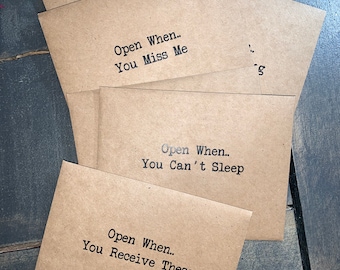 Open When..
You Miss Me
Open When..
You Can't Sleep
Open When..
You Receive These